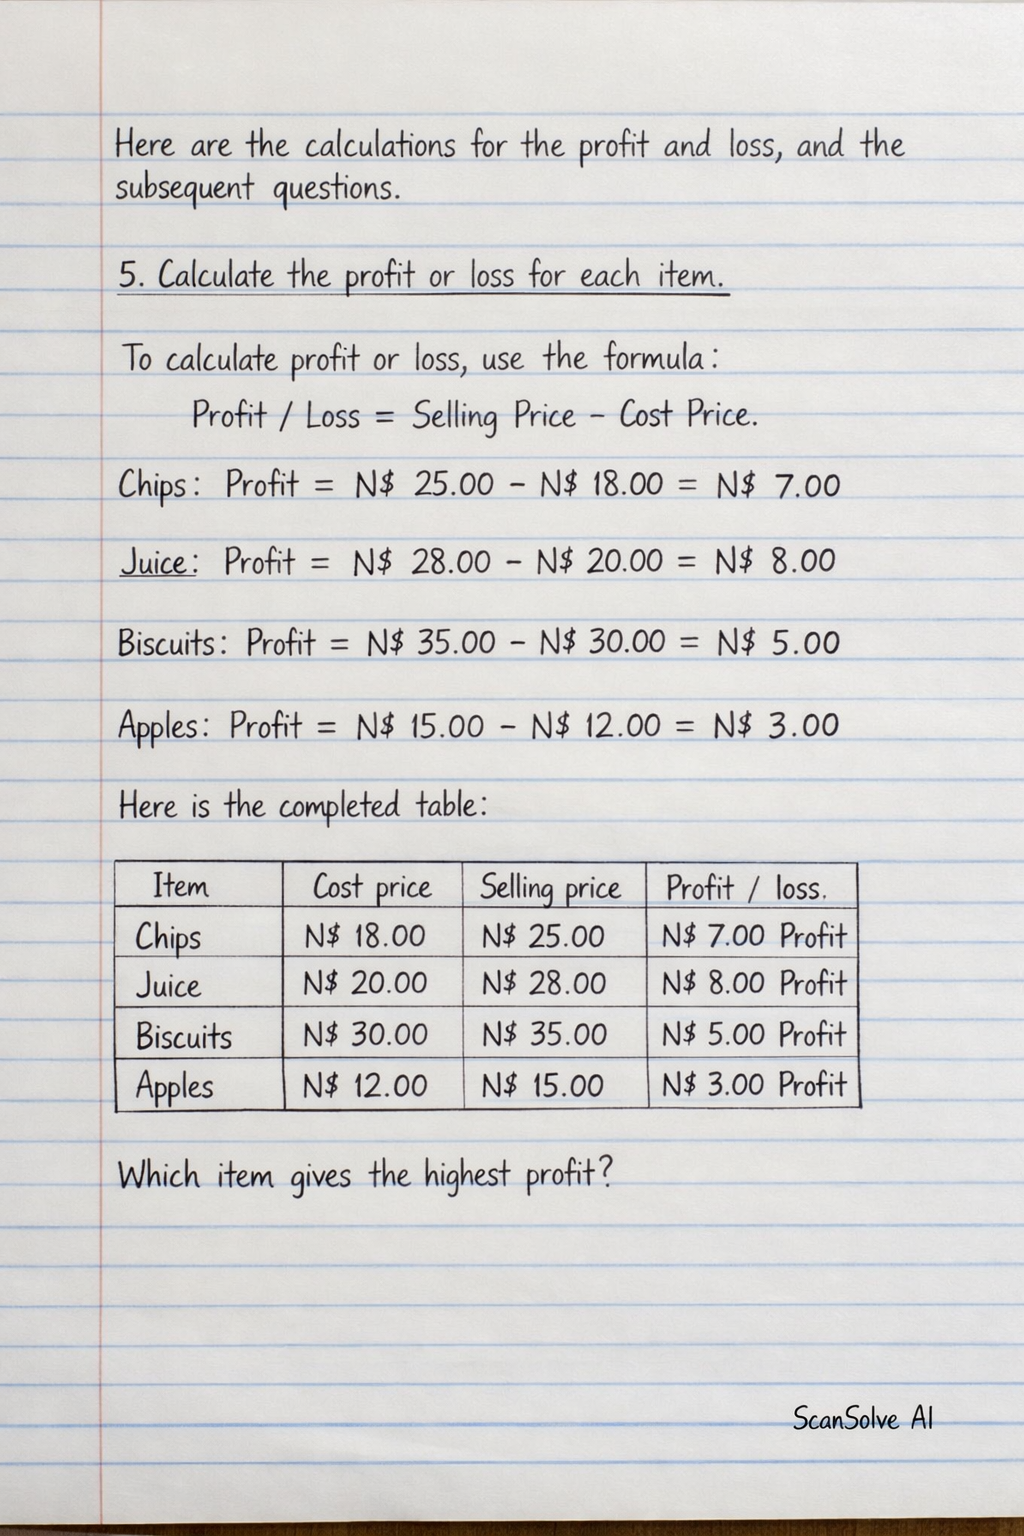 Here are the calculations for the profit and loss, and the
subsequent questions.
5. Calculate the profit or loss for each item.
To calculate profit or loss, use the formula:
Profit / Loss = Selling Price - Cost Price.
Chips: Profit = N$ 25.00 - N$ 18.00 = N$ 7.00
Juice: Profit = N$ 28.00 - N$ 20.00 = N$ 8.00
Biscuits: Profit = N$ 35.00 - N$ 30.00 = N$ 5.00
Apples: Profit = N$ 15.00 - N$ 12.00 = N$ 3.00
Here is the completed table:
Item Cost price Selling price Profit / loss.
Chips N$ 18.00 N$ 25.00 N$ 7.00 Profit
Juice N$ 20.00 N$ 28.00 N$ 8.00 Profit
Biscuits N$ 30.00 N$ 35.00 N$ 5.00 Profit
Apples N$ 12.00 N$ 15.00 N$ 3.00 Profit
Which item gives the highest profit?
ScanSolve AI